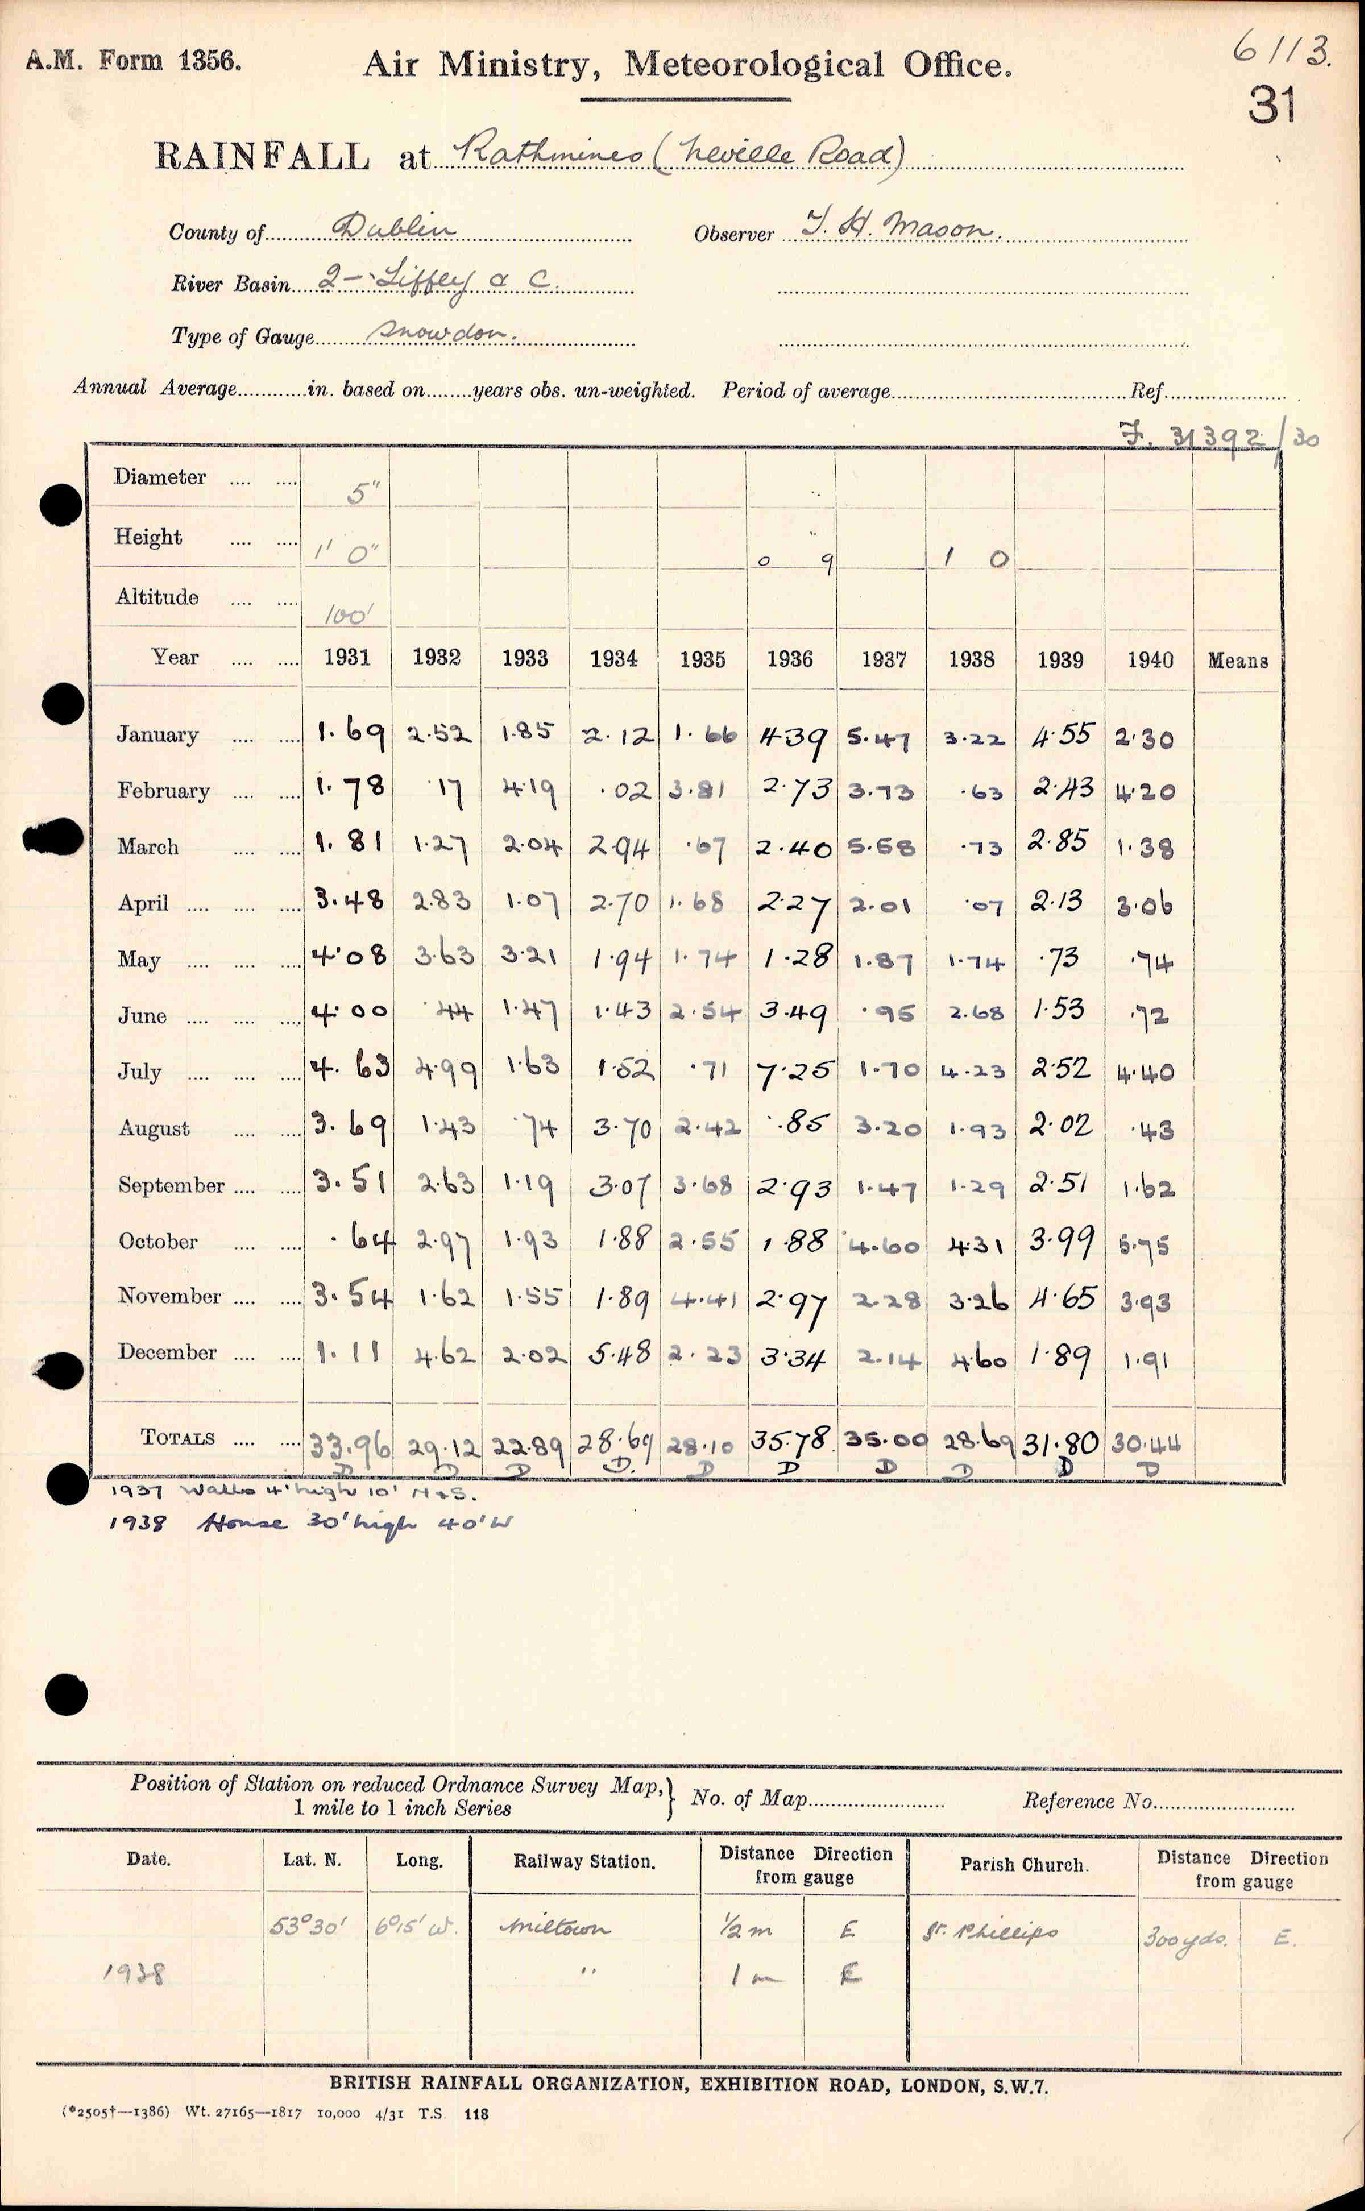 A.M. Form 1356.
Air Ministry, Meteorological Office.
6113.
31
RAINFALL at Rathmines (Neville Road)
County of Dublin Observer T. H. Mason.
River Basin 2 - Liffey & C.
Type of Gauge Snowdon.
Annual Average............in. based on........years obs. un-weighted. Period of average........................Ref................
F. 31392/30
Diameter .... .... 5"
Height .... .... 1' 0" 0 9 1 0
Altitude .... .... 100'
Year .... .... 1931 1932 1933 1934 1935 1936 1937 1938 1939 1940 Means
January .... .... 1.69 2.52 1.85 2.12 1.66 4.39 5.47 3.22 4.55 2.30
February .... .... 1.78 .17 4.19 .02 3.81 2.73 3.73 .63 2.43 4.20
March .... .... 1.81 1.27 2.04 2.94 .67 2.40 5.58 .73 2.85 1.38
April .... .... .... 3.48 2.83 1.07 2.70 1.68 2.27 2.01 .07 2.13 3.06
May .... .... .... 4.08 3.63 3.21 1.94 1.74 1.28 1.87 1.74 .73 .74
June .... .... .... 4.00 .44 1.47 1.43 2.54 3.49 .95 2.68 1.53 .72
July .... .... .... 4.63 4.99 1.63 1.52 .71 7.25 1.70 4.23 2.52 4.40
August .... .... 3.69 1.43 .74 3.70 2.42 .85 3.20 1.93 2.02 .43
September .... .... 3.51 2.63 1.19 3.07 3.68 2.93 1.47 1.29 2.51 1.62
October .... .... .64 2.97 1.93 1.88 2.55 1.88 4.60 4.31 3.99 5.75
November .... .... 3.54 1.62 1.55 1.89 4.41 2.97 2.28 3.26 4.65 3.93
December .... .... 1.11 4.62 2.02 5.48 2.23 3.34 2.14 4.60 1.89 1.91
TOTALS .... .... 33.96 29.12 22.89 28.69 28.10 35.78 35.00 28.69 31.80 30.44
D D D D. D D D D D D
1937 Walls 4' high 10' N & S.
1938 House 30' high 40' W
Position of Station on reduced Ordnance Survey Map,} No. of Map........................ Reference No........................
1 mile to 1 inch Series
Date. Lat. N. Long. Railway Station. Distance Direction from gauge Parish Church. Distance Direction from gauge
53°30' 6°15' W. Miltown ½ m E St. Phillips 300 yds. E.
1938 " 1 m E
BRITISH RAINFALL ORGANIZATION, EXHIBITION ROAD, LONDON, S.W.7.
(*2505†—1386) Wt. 27165—1817 10,000 4/31 T.S. 118